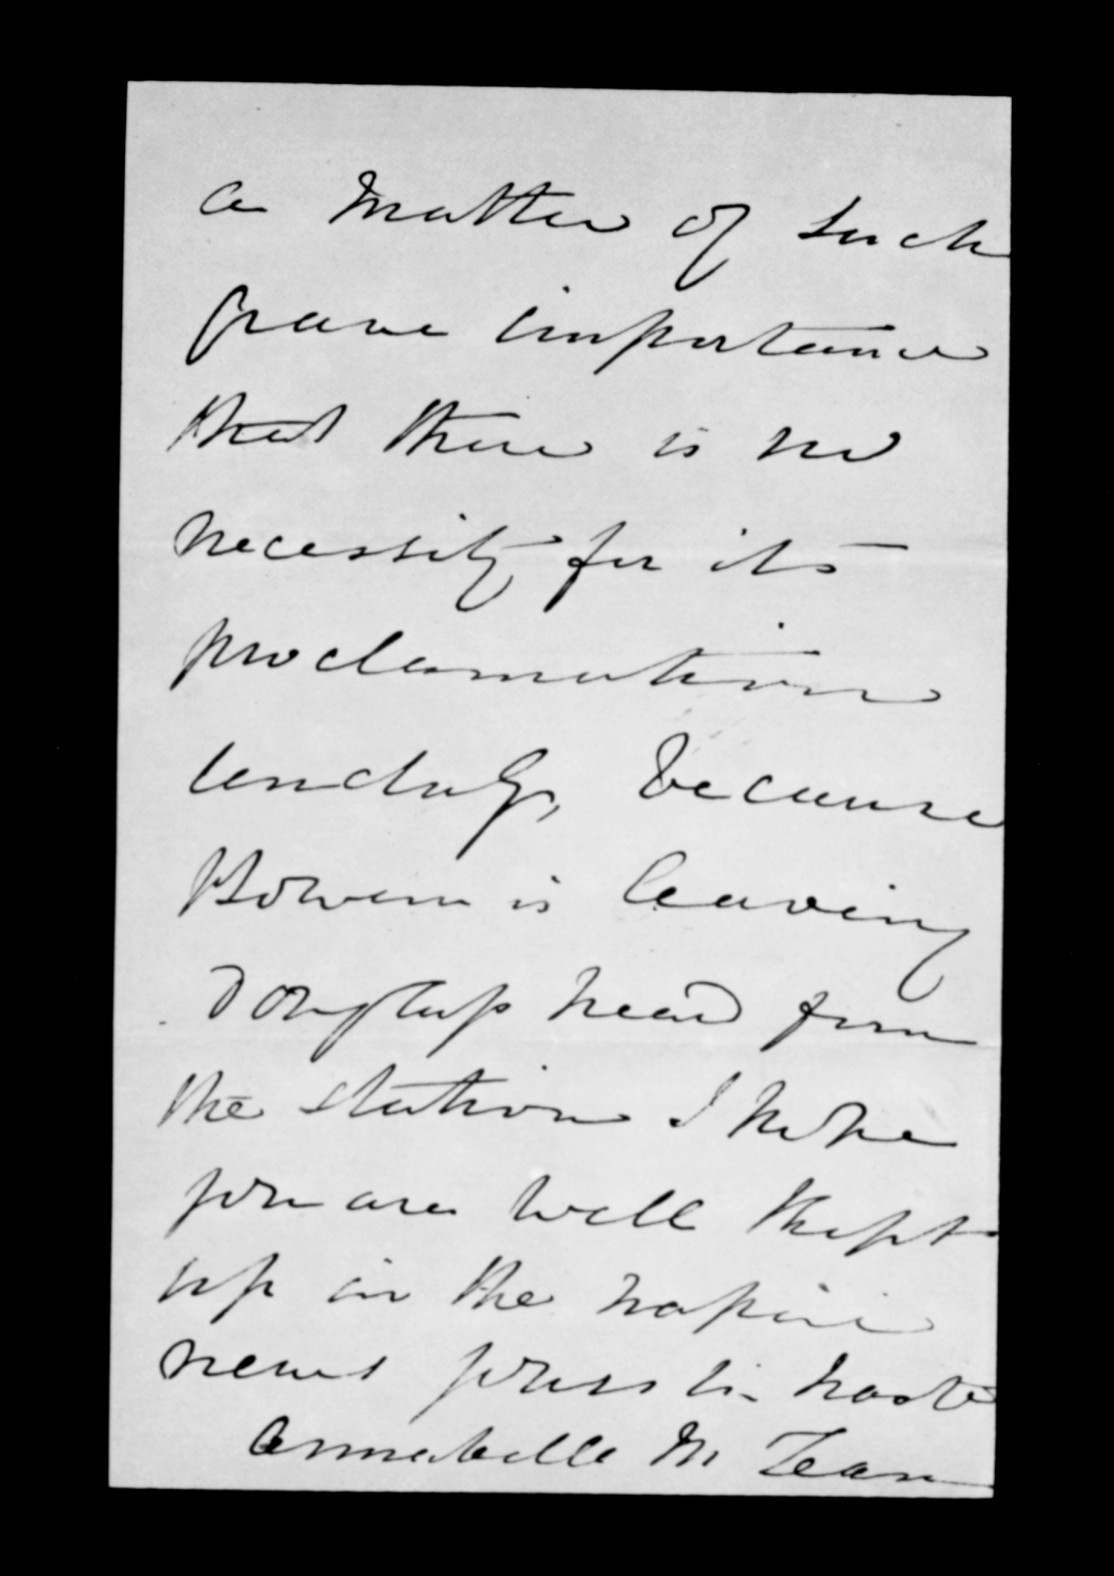 a matter of such
grave importance
that there is no
necessity for its
proclamation
unduly, because
Bowen is leaving
Douglass head from
the station I hope
you are well kept
up in the napier
news yours in haste
Annabella McLean